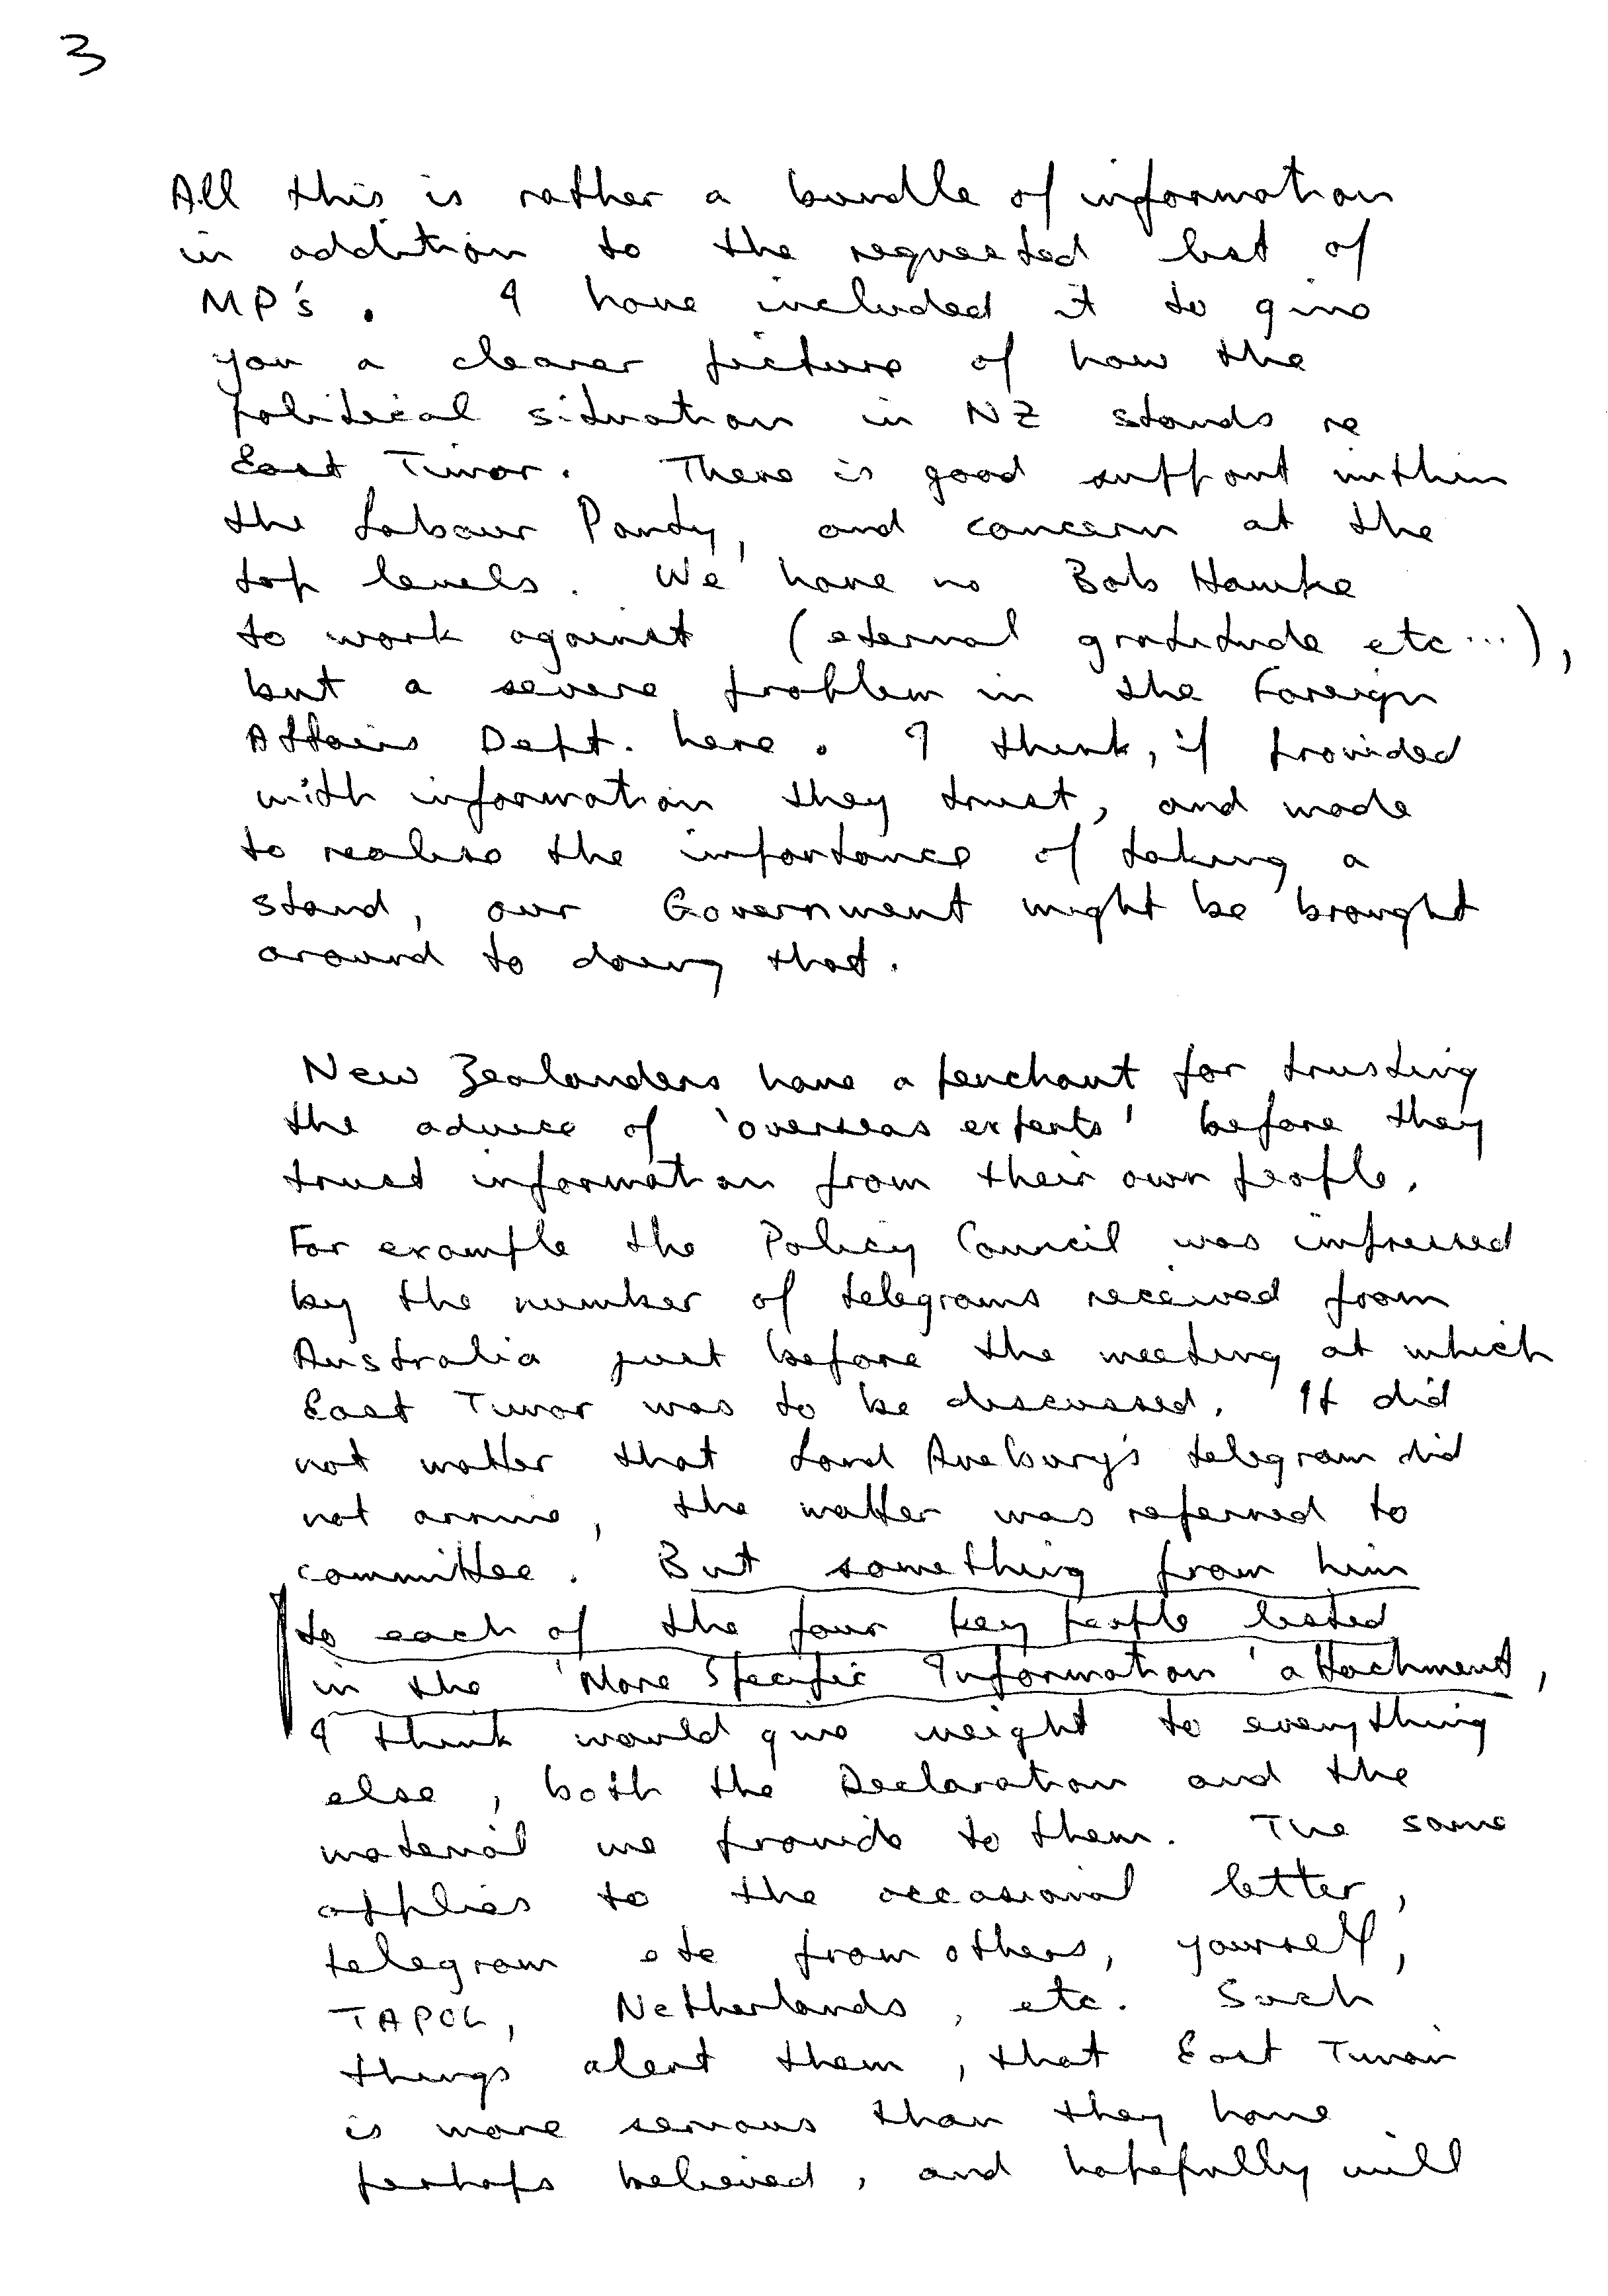 3
All this is rather a bundle of information
in addition to the requested list of
MP's. I have included it to give
you a clearer picture of how the
political situation in NZ stands re
East Timor. There is good support within
the Labour Party, and concern at the
top levels. We have no Bob Hawke
to work against (eternal gratitude etc...),
but a severe problem in the Foreign
Affairs Dept. here. I think, if provided
with information they trust, and made
to realise the importance of taking a
stand, our Government might be brought
around to doing that.
New Zealanders have a penchant for trusting
the advice of 'overseas experts' before they
trust information from their own people.
For example the Policy Council was impressed
by the number of telegrams received from
Australia just before the meeting at which
East Timor was to be discussed. It did
not matter that Lord Avebury's telegram did
not arrive, the matter was referred to
committee. But something from him
to each of the four key people listed
in the 'More Specific Information' attachment,
I think would give weight to everything
else, both the Declaration and the
material we provide to them. The same
applies to the occasional letter,
telegram etc from others, yourself,
TAPOL, Netherlands, etc. Such
things alert them, that East Timor
is more serious than they have
perhaps believed, and hopefully will